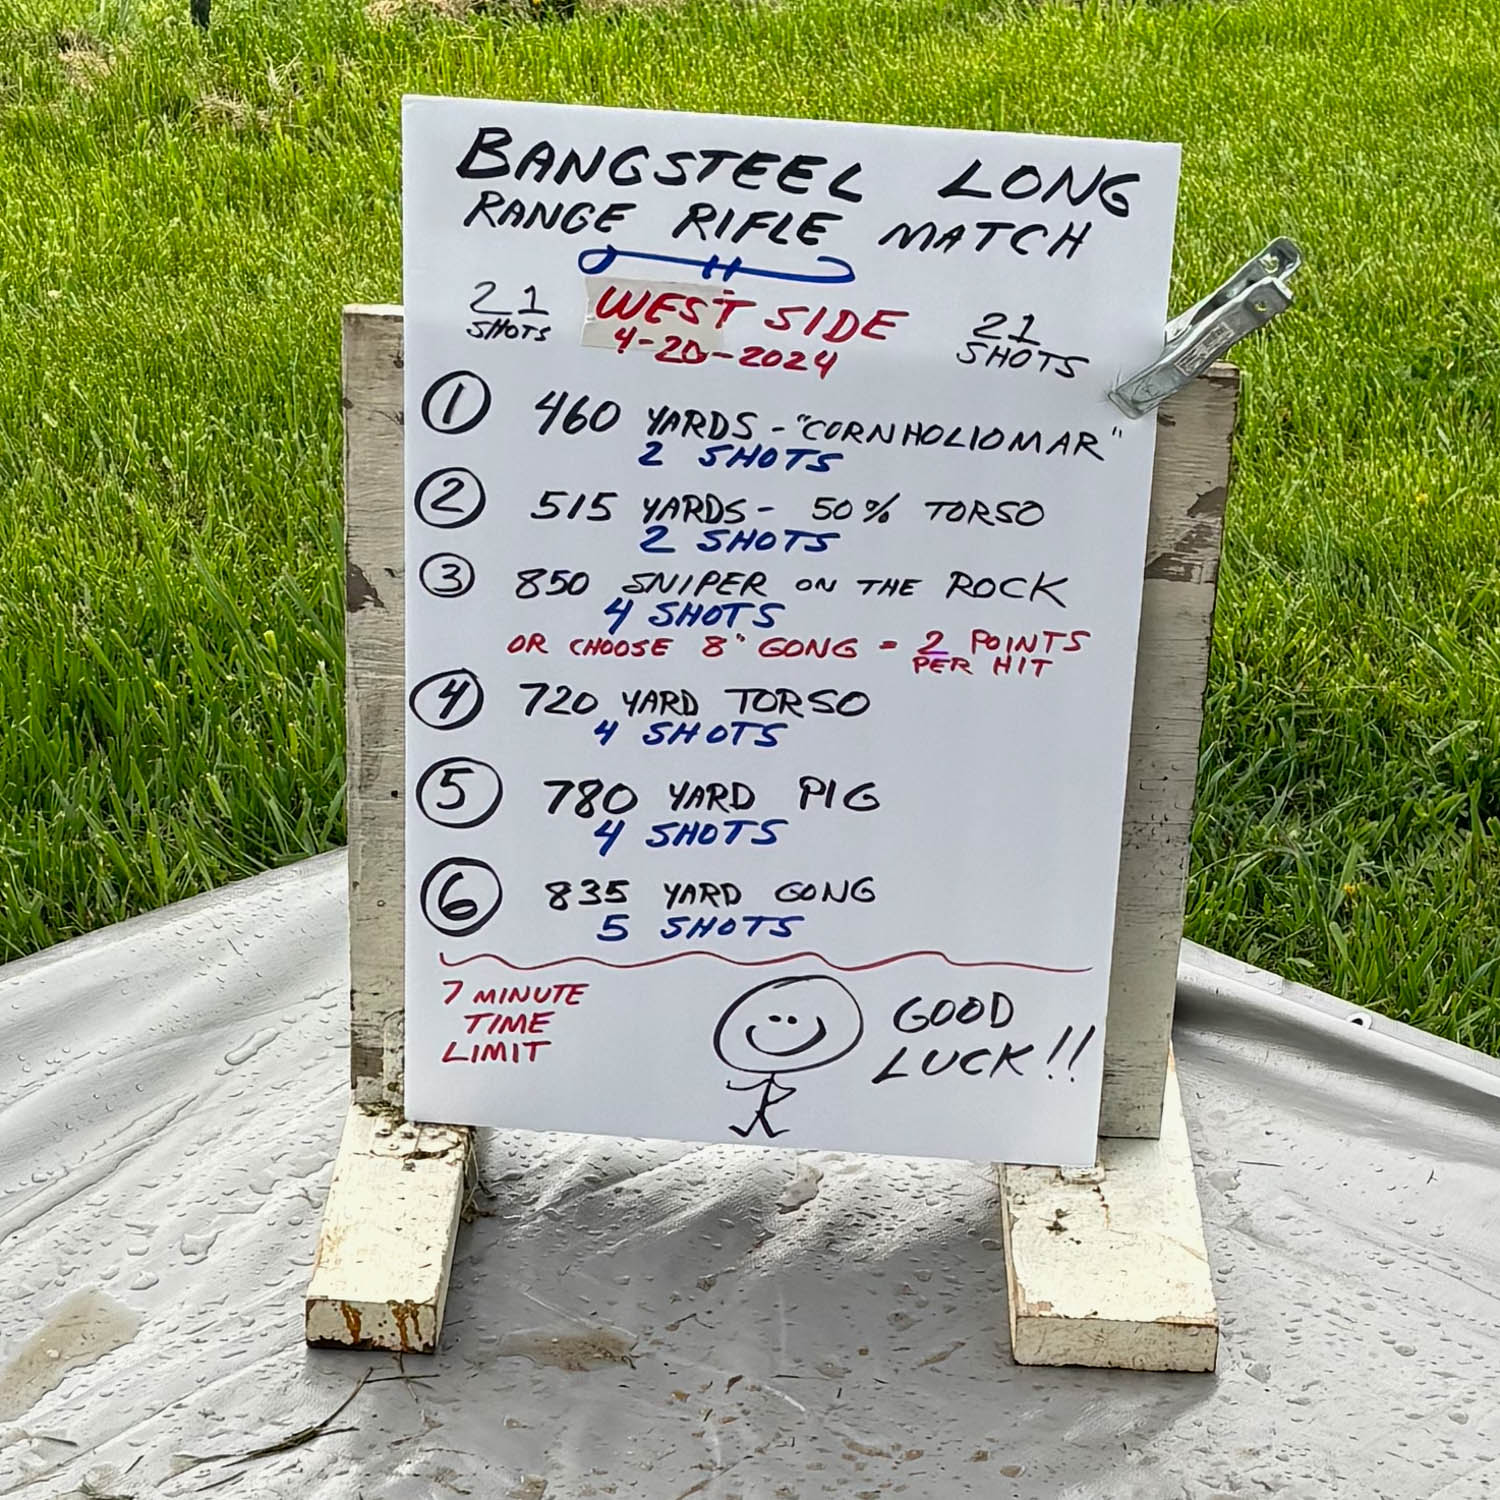 BANGSTEEL LONG
RANGE RIFLE MATCH
21 SHOTS
WEST SIDE
4-20-2024
21 SHOTS
1 460 YARDS - "CORNHOLIOMAR"
2 SHOTS
2 515 YARDS - 50% TORSO
2 SHOTS
3 850 SNIPER ON THE ROCK
4 SHOTS
OR CHOOSE 8" GONG = 2 POINTS
PER HIT
4 720 YARD TORSO
4 SHOTS
5 780 YARD PIG
4 SHOTS
6 835 YARD GONG
5 SHOTS
7 MINUTE
TIME
LIMIT
GOOD
LUCK!!